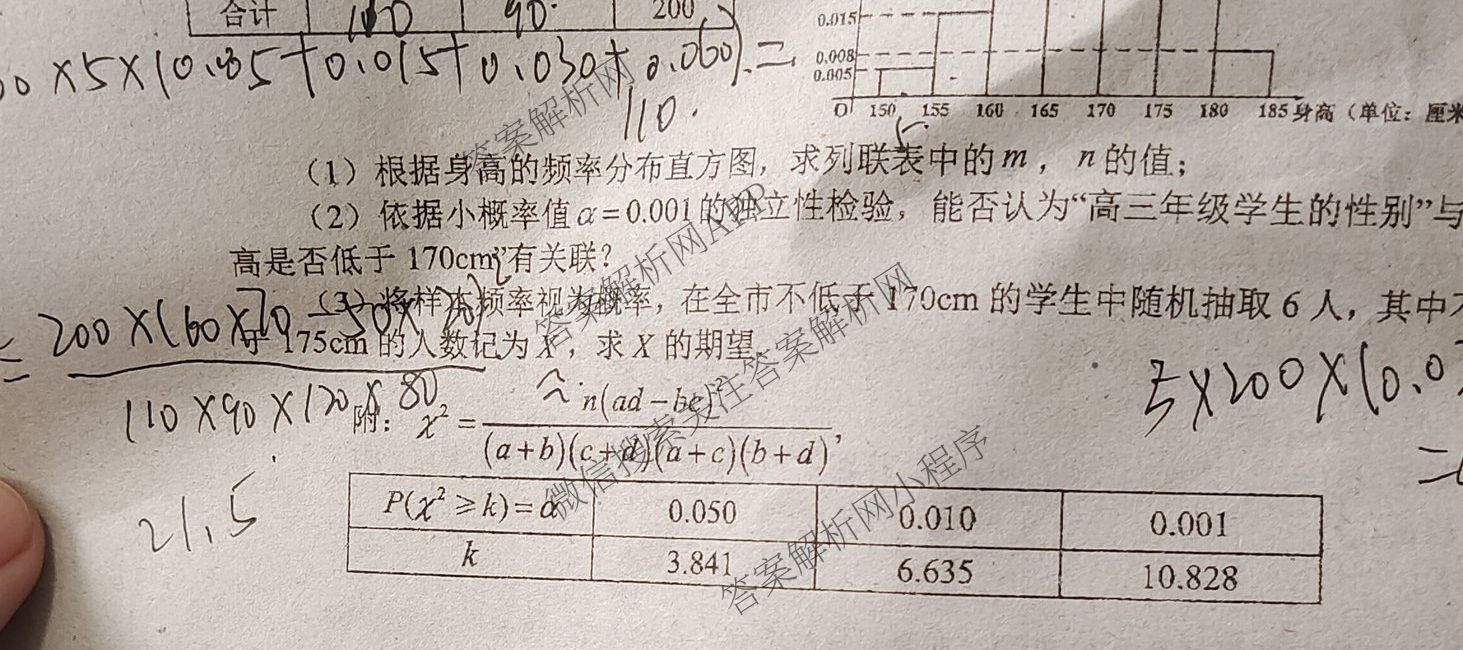 合计 110 90 200
0.015
×5×(0.005+0.015+0.030+0.060)=
0.008
0.005
110.
O 150 155 160 165 170 175 180 185 身高（单位：厘米
（1）根据身高的频率分布直方图，求列联表中的m，n的值；
（2）依据小概率值α=0.001的独立性检验，能否认为“高三年级学生的性别”与
高是否低于170cm”有关联？
（3）将样本频率视为概率，在全市不低于170cm的学生中随机抽取6人，其中不
于175cm的人数记为X，求X的期望.
= 200×(60×70-50×20)²
110×90×120×80
5×200×(0.0
附：χ²=n(ad-bc)²/(a+b)(c+d)(a+c)(b+d)，
21.5
P(χ²≥k)=α 0.050 0.010 0.001
k 3.841 6.635 10.828
答案解析网
微信搜索关注答案解析网
答案解析网APP
答案解析网小程序